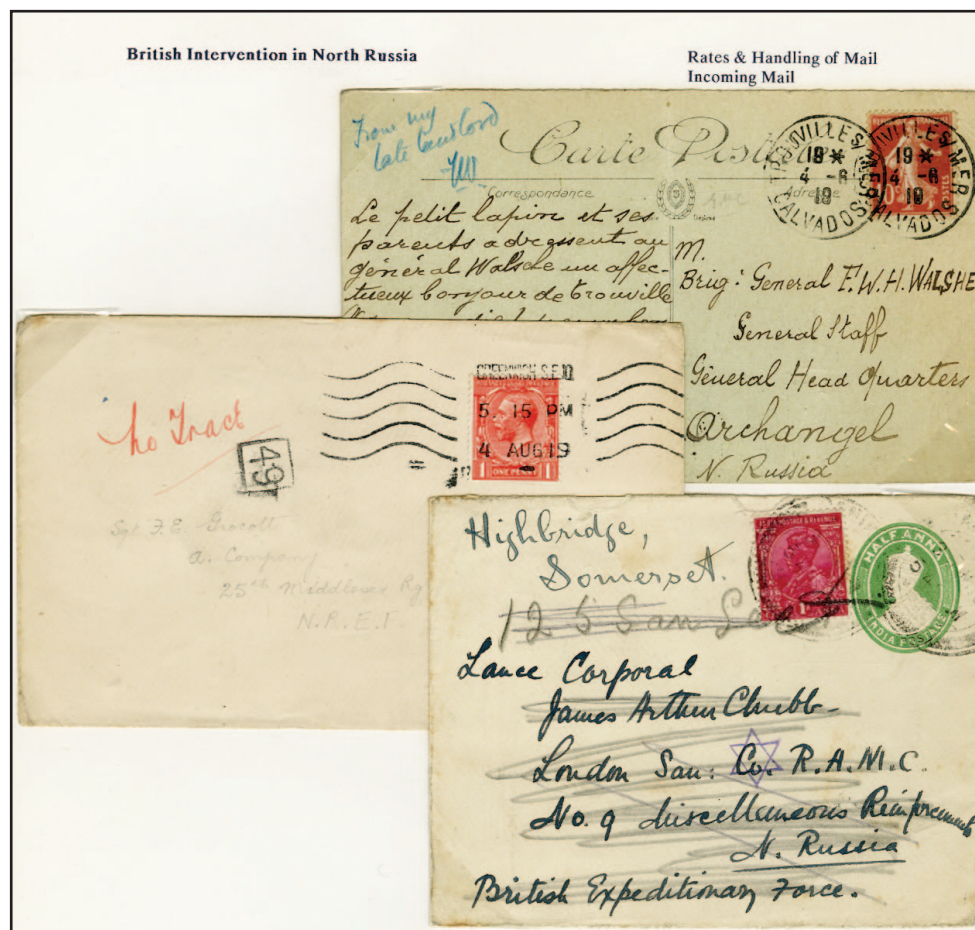 British Intervention in North Russia
Rates & Handling of Mail
Incoming Mail
From my
late landlord
Carte Postale
Correspondance
Adresse
TROUVILLE S/MER
19 *
4 -6
19
CALVADOS
TROUVILLE S/MER
19 *
4 -6
19
CALVADOS
Le petit lapin et ses
parents adressent au
général Walshe un affec-
tueux bonjour de Trouville
M.
Brig: General F.W.H. WALSHE
General Staff
General Head Quarters
Archangel
N. Russia
No Tract
49
GREENWICH S.E.10
5. 15 PM
4 AUG 19
1 ONE PENNY 1
Sgt F.E. Grocott
a. Company
25th Middlesex Rg
N.R.E.F.
Highbridge,
Somerset.
125 San
INDIA POSTAGE & REVENUE
HALF ANNA
INDIA POSTAGE
Lance Corporal
James Arthur Chubb
London San: Co. R.A.M.C.
No. 9 Miscellaneous Reinforcements
N. Russia
British Expeditionary Force.